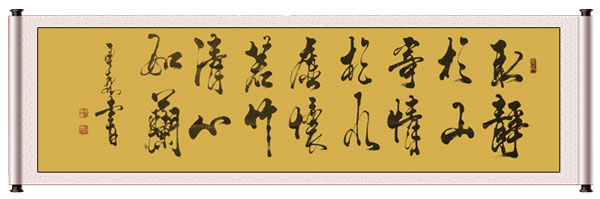 取靜
於山
寄情
於水
虛懷
若竹
清心
如蘭